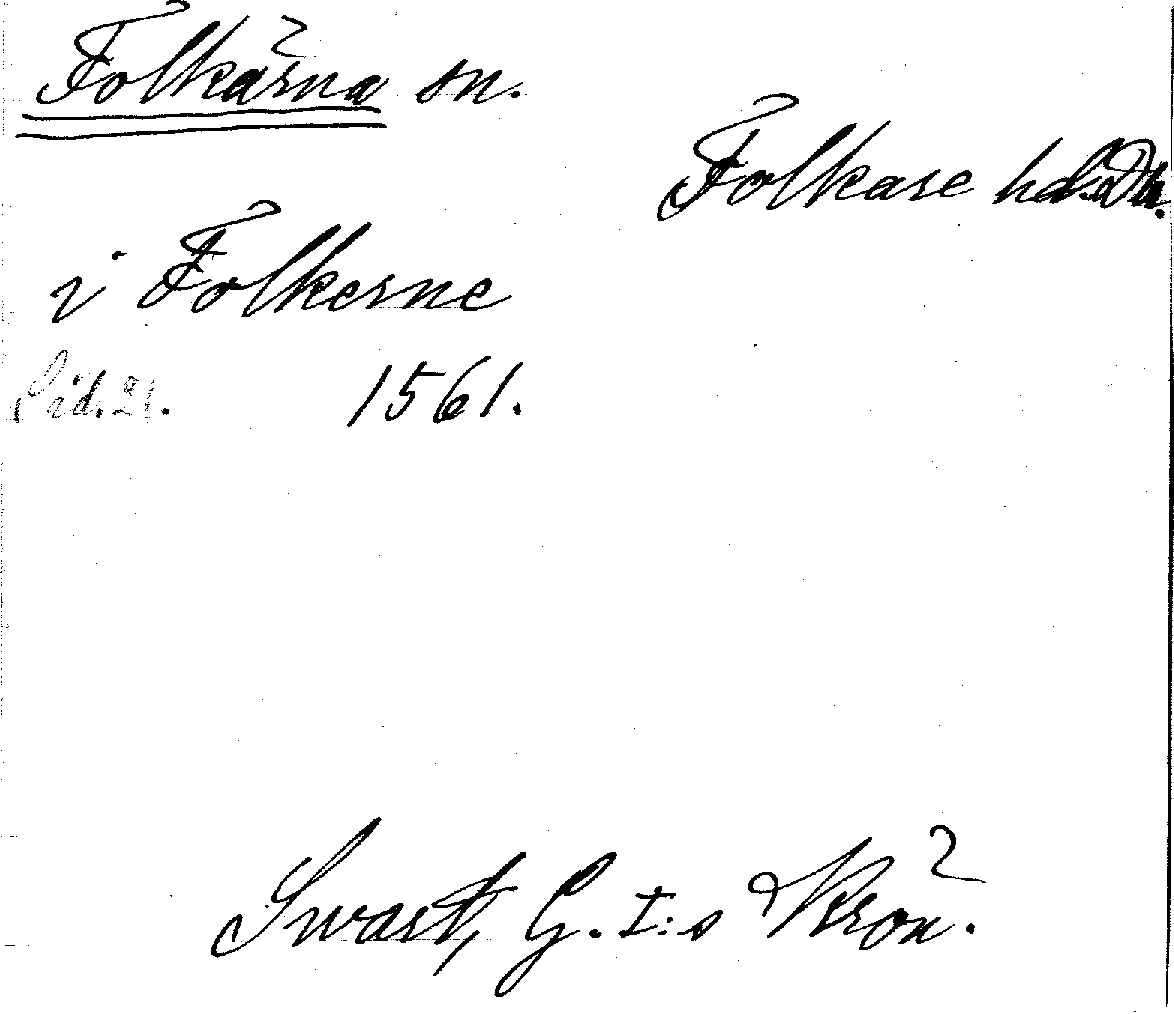 Folkärna sn.
Folkare hd. Da.
i Folkerne
Sid. 21. 1561.
Swart, G. I:s Krön.